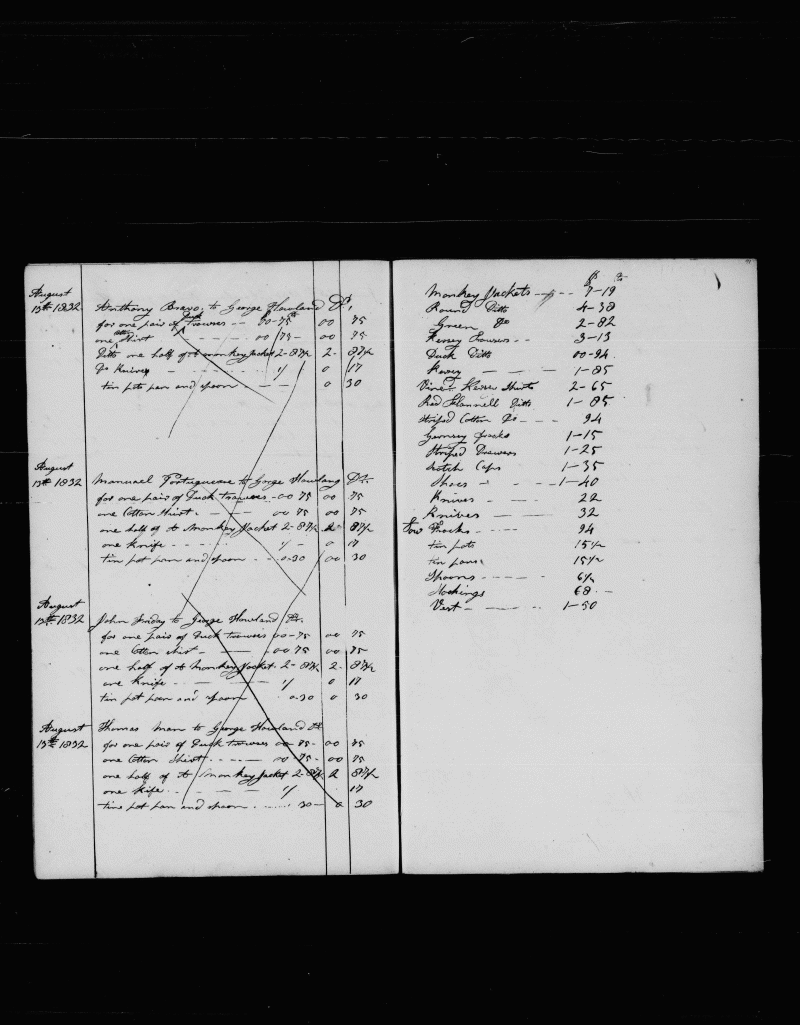 August
13th 1832 Anthony Bravo, to George Howland Dr,
Duck
for one pair of Trowses -- 00-75 00 75
Cotton
one Shirt - - - - 00 75 - 00 75
Ditto one half of A monkey Jacket 2-87½ 2- 87½
Do Knives - - - - 1/ 0 17
tin pot pan and spoon - - - 0 30
August
13th 1832 Manuael Portugueese to Gorge Howlang Dr.
for one pair of Duck trowses - 00 75 00 75
one Cotton Shirt - - - 00 75 00 75
one half of A Monkey Jacket 2-87½ 2 87½
one Knife - - - - 1/ - 0 17
tin pot pan and spoon - - 0-30 00 30
August
13th 1832 John Friday to George Howland Dr.
for one pair of Duck trowses 00-75 00 75
one Cotton shirt - - - 00 75 00 75
one half of A Monkey Jacket 2-87½ 2- 87½
one Knife - - - - 1/ 0 17
tin pot pan and spoon 0-30 0 30
August
13th 1832 Thomas Man to George Howland Dr
for one pair of Duck trowses 00 75- 00 75
one Cotton Shirt - - - - 00-75- 00 75
one half of A Monkey Jacket 2-87½ 2 87½
one Kife - - - - 1/ 17
tine pot pan and spoon - - - 30 - 0 30
$ Cts
Monkey Jackets - - - 7-19
Round Ditto 4-38
Green Do 2-82
Kersey Trowses -- 3-13
Duck Ditto 00-94
Kersey - - - 1-85
Kersey Shirts 2-65
Red Flannell Ditto 1-85
Striped Cotton Do - - - 94
Guernsey frocks 1-15
Striped Drawers 1-25
Scotch Caps 1-35
Shoes - - - 1-40
Knives - - 22
Knives - - - 32
Tow Frocks - - - 94
tin pots 15½
tin pans 15½
Spoons - - - 6½
Stockings 68 -
Vest - - - - 1-50